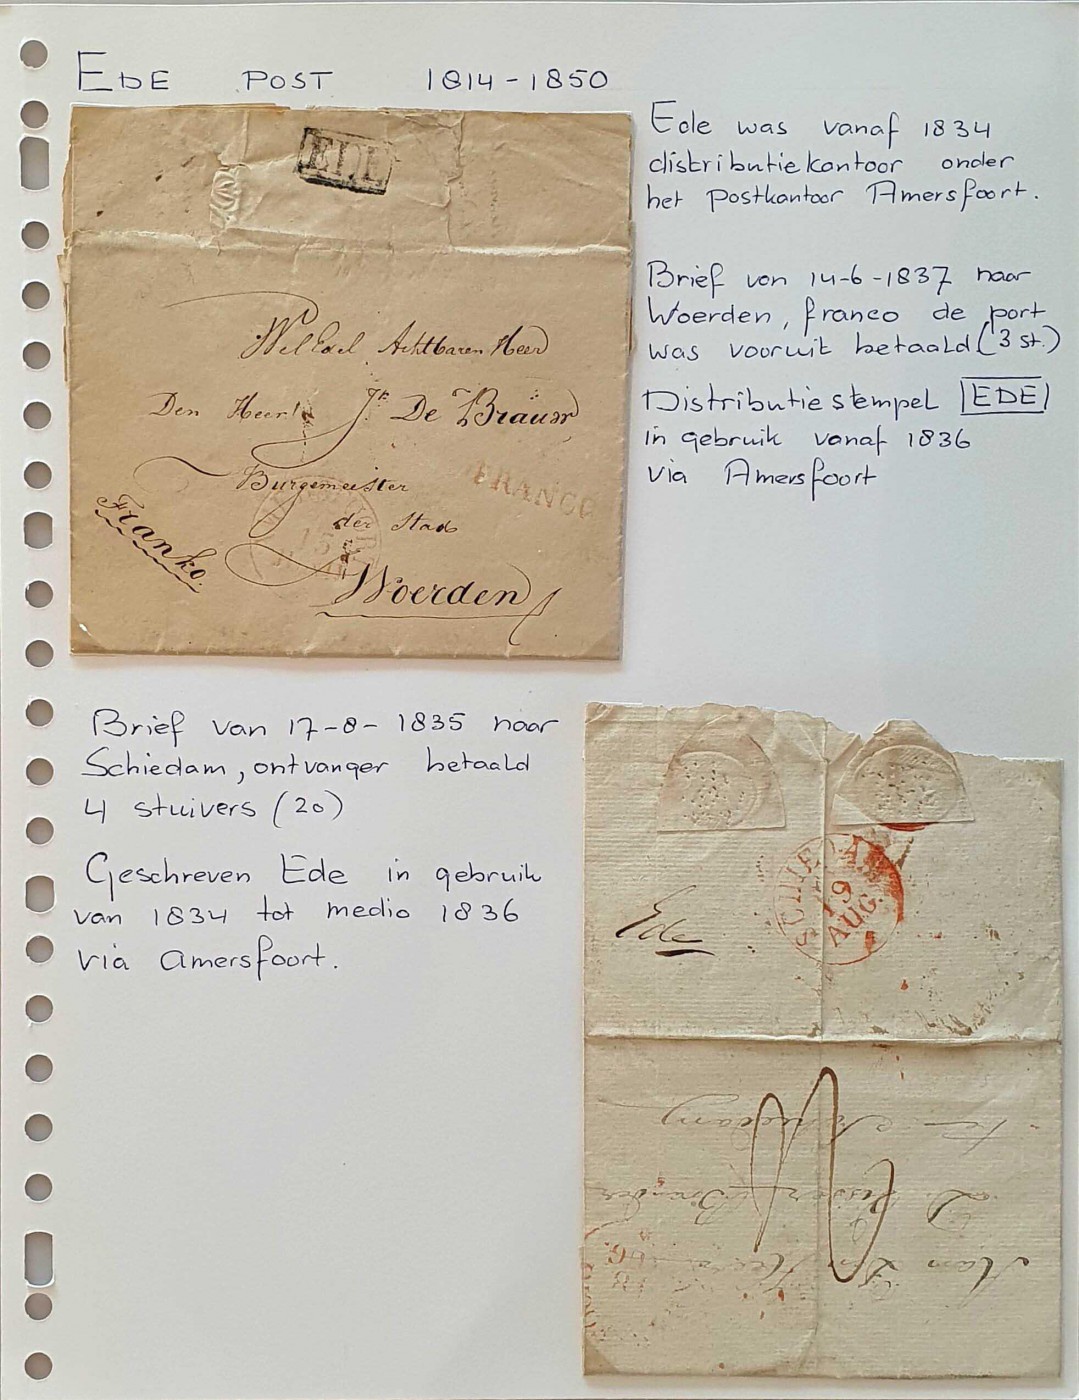 EDE POST 1814-1850
Ede was vanaf 1834
distributiekantoor onder
het postkantoor Amersfoort.
Brief van 14-6-1837 naar
Woerden, franco de port
was vooruit betaald (3 st.)
Distributiestempel EDE
in gebruik vanaf 1836
via Amersfoort
EDE
WelEdel Achtbaren Heer
Den Heer
De Bräuw
Burgemeister
FRANCO
der Stad
15
Franko.
Woerden
Brief van 17-8-1835 naar
Schiedam, ontvanger betaald
4 stuivers (20)
Geschreven Ede in gebruik
van 1834 tot medio 1836
via Amersfoort.
SCHIEDAM
19
AUG.
Ede
Aan
18